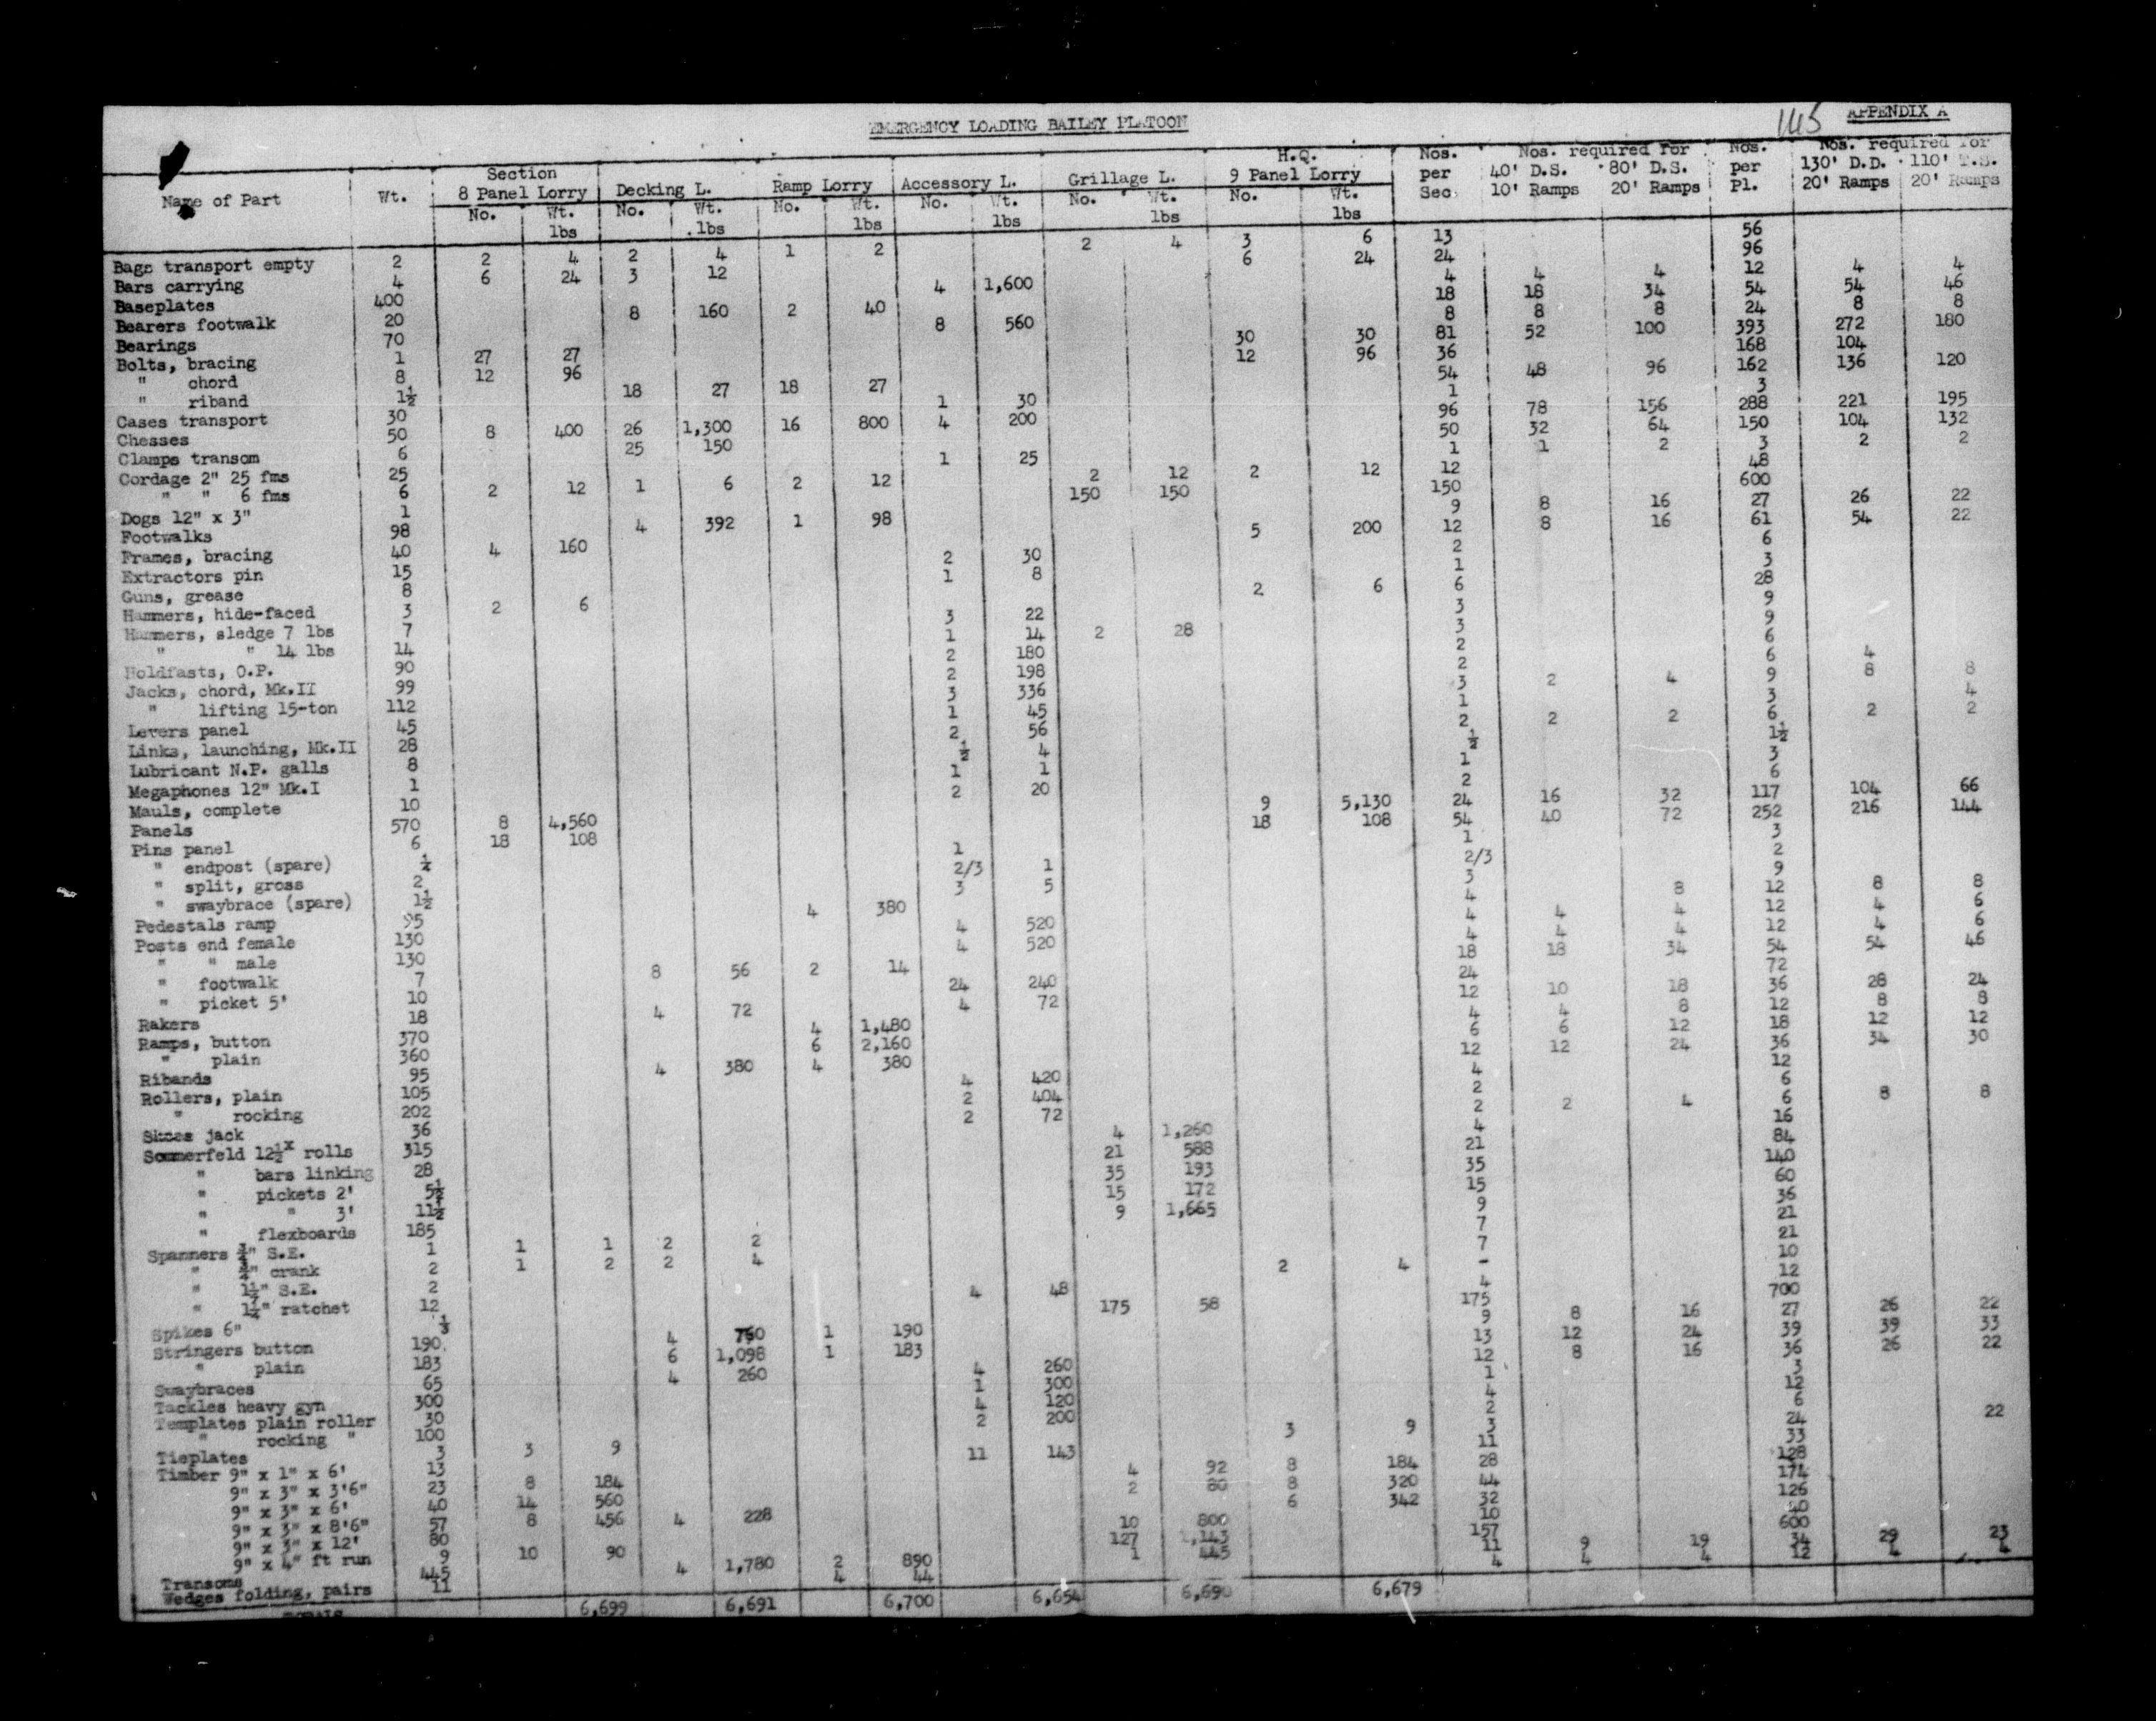 145 APPENDIX A
EMERGENCY LOADING BAILEY PLATOON
Name of Part Wt. Section 8 Panel Lorry Decking L. Ramp Lorry Accessory L. Grillage L. H.Q. 9 Panel Lorry Nos. per Sec Nos. required for 40' D.S. 10' Ramps 80' D.S. 20' Ramps Nos. per Pl. Nos. required for 130' D.D. 20' Ramps 110' T.S. 20' Ramps
No. Wt. lbs No. Wt. lbs No. Wt. lbs No. Wt. lbs No. Wt. lbs No. Wt. lbs
Bags transport empty 2 2 4 2 4 1 2 2 4 3 6 13 56
Bars carrying 4 6 24 3 12 6 24 24 96
Baseplates 400 4 1,600 4 4 4 12 4 4
Bearers footwalk 20 8 160 2 40 18 18 34 54 54 46
Bearings 70 8 560 8 8 8 24 8 8
Bolts, bracing 1 27 27 30 30 81 52 100 393 272 180
" chord 8 12 96 12 96 36 168 104
" riband 1½ 18 27 18 27 54 48 96 162 136 120
Cases transport 30 1 30 1 3
Chesses 50 8 400 26 1,300 16 800 4 200 96 78 156 288 221 195
Clamps transom 6 25 150 50 32 64 150 104 132
Cordage 2" 25 fms 25 1 25 1 1 2 3 2 2
" " 6 fms 6 2 12 1 6 2 12 2 12 2 12 12 48
Dogs 12" x 3" 1 150 150 150 600
Footwalks 98 4 392 1 98 9 8 16 27 26 22
Frames, bracing 40 4 160 5 200 12 8 16 61 54 22
Extractors pin 15 2 30 2 6
Guns, grease 8 1 8 1 3
Hammers, hide-faced 3 2 6 2 6 6 28
Hammers, sledge 7 lbs 7 3 22 3 9
" " 14 lbs 14 1 14 2 28 3 9
Holdfasts, O.P. 90 2 180 2 6
Jacks, chord, Mk.II 99 2 198 2 6 4
" lifting 15-ton 112 3 336 3 2 4 9 8 8
Levers panel 45 1 45 1 3 4
Links, launching, Mk.II 28 2 56 2 2 2 6 2 2
Lubricant N.P. galls 8 ½ 4 ½ 1½
Megaphones 12" Mk.I 1 1 1 1 3
Mauls, complete 10 2 20 2 6
Panels 570 8 4,560 9 5,130 24 16 32 117 104 66
Pins panel 6 18 108 18 108 54 40 72 252 216 144
" endpost (spare) ½ 1 1 3
" split, gross 2 2/3 1 2/3 2
" swaybrace (spare) 1½ 3 5 3 9
Pedestals ramp 95 4 380 4 8 12 8 8
Posts end female 130 4 520 4 4 4 12 4 6
" " male 130 4 520 4 4 4 12 4 6
" footwalk 7 8 56 2 14 18 18 34 54 54 46
" picket 5' 10 24 240 24 72
Rakers 18 4 72 4 72 12 10 18 36 28 24
Ramps, button 370 4 1,480 4 4 8 12 8 8
" plain 360 6 2,160 6 6 12 18 12 12
Ribands 95 4 380 4 380 12 12 24 36 34 30
Rollers, plain 105 4 420 4 12
" rocking 202 2 404 2 6
Shoes jack 36 2 72 2 2 4 6 8 8
Sommerfeld 12½x rolls 315 4 1,260 4 16
" bars linking 28 21 588 21 84
" pickets 2' 5½ 35 193 35 140
" " 3' 11½ 15 172 15 60
" flexboards 185 9 1,665 9 36
Spanners ¾" S.E. 1 1 1 2 2 7 21
" ¾" crank 2 1 2 2 4 7 21
" 1¼" S.E. 2 2 4 - 10
" 1¼" ratchet 12 4 48 4 12
Spikes 6" ⅓ 175 58 175 700
Stringers button 190 4 760 1 190 9 8 16 27 26 22
" plain 183 6 1,098 1 183 13 12 24 39 39 33
Swaybraces 65 4 260 4 260 12 8 16 36 26 22
Tackles heavy gyn 300 1 300 1 3
Templates plain roller 30 4 120 4 12
" rocking " 100 2 200 2 6
Tieplates 3 3 9 3 9 3 24 22
Timber 9" x 1" x 6' 13 11 143 11 33
9" x 3" x 3'6" 23 8 184 4 92 8 184 28 128
9" x 3" x 6' 40 14 560 2 80 8 320 44 174
9" x 3" x 8'6" 57 8 456 4 228 6 342 32 126
9" x 3" x 12' 80 10 800 10 40
9" x 4" ft run 9 10 90 127 1,143 157 600
Transoms 445 4 1,780 2 890 1 445 11 9 19 34 29 23
Wedges folding, pairs 11 4 44 4 4 4 12 4 4
TOTALS 6,699 6,691 6,700 6,654 6,690 6,679